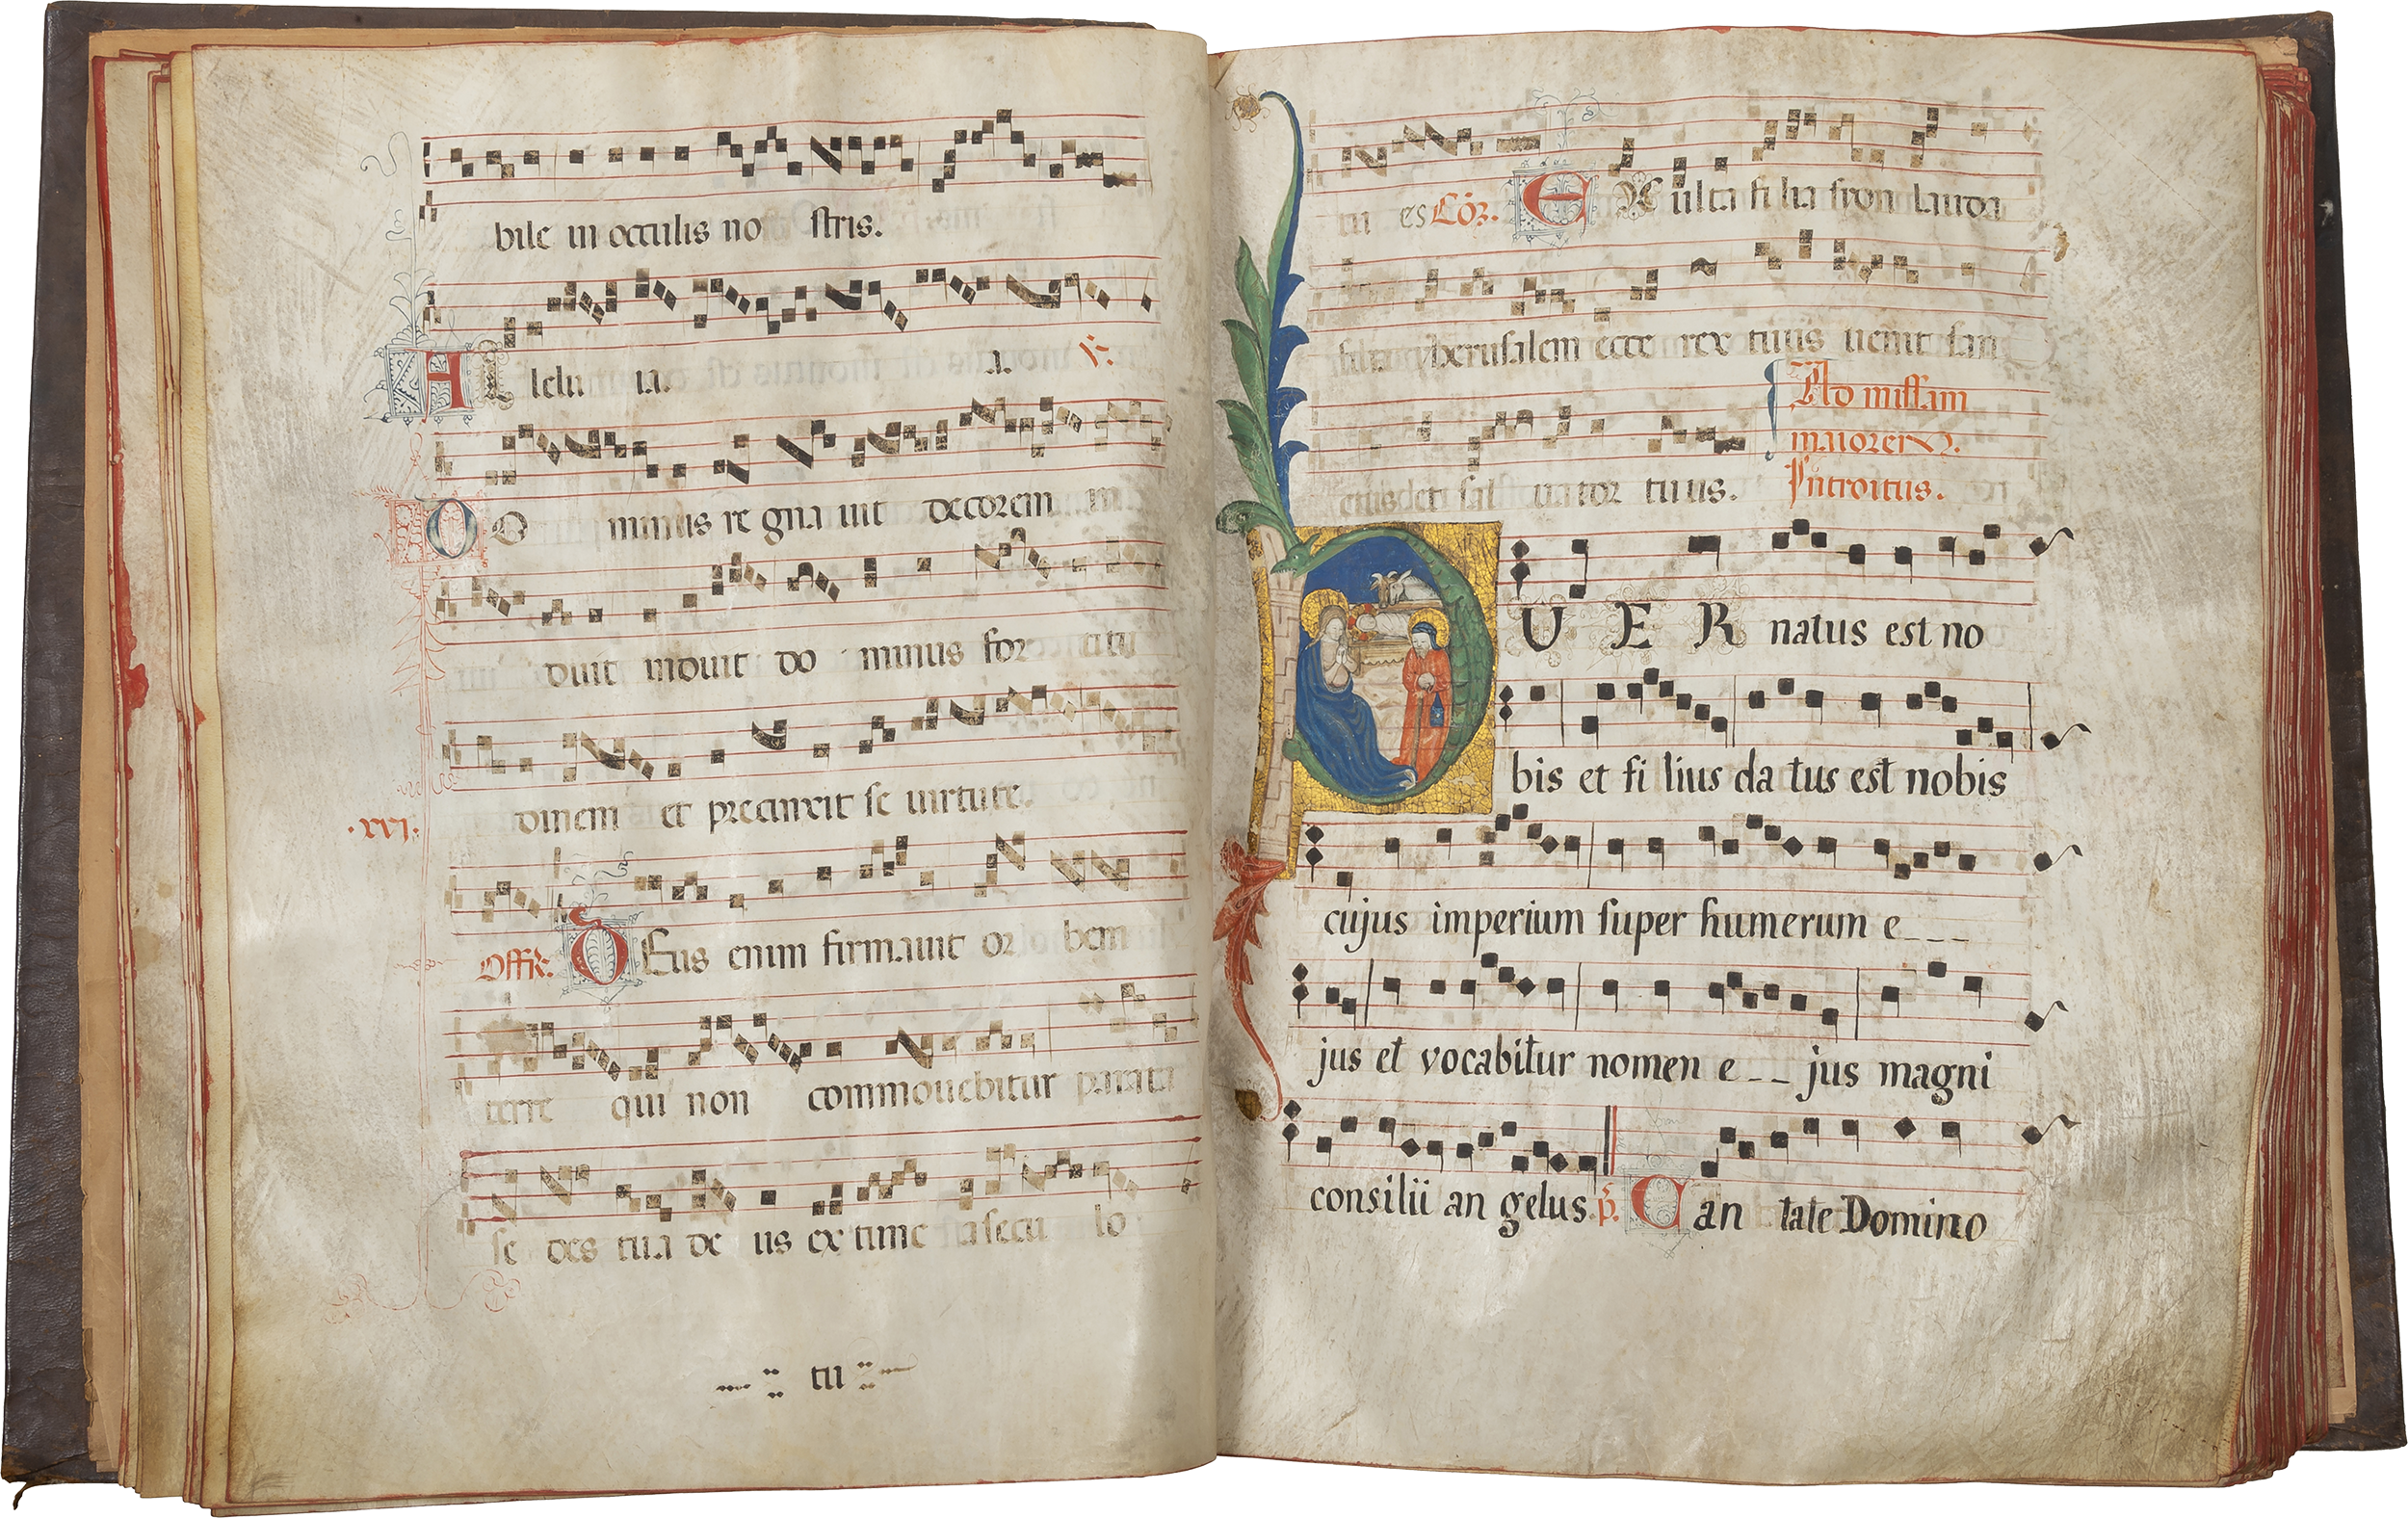 bile in occulis no stris.
Al lelu ia. .i. ℣.
DO minus re gna uit decorem in
duit induit do minus for titu
dinem et precinxit se uirtute.
.xvi.
Offr. DEus enim firmauit or bem
terre qui non commouebitur parata
se des tua de us ex tunc a secu lo
tu
in es Cōᷓ. EXulta filia syon lauda
filia yherusalem ecce rex tuus uenit san
ctus et sal uator tuus. Ad missam
maiorem.
Introitus.
PUER natus est no
bis et fi lius da tus est nobis
cujus imperium super humerum e___
jus et vocabitur nomen e__jus magni
consilii an gelus. p̄. Can tate Domino